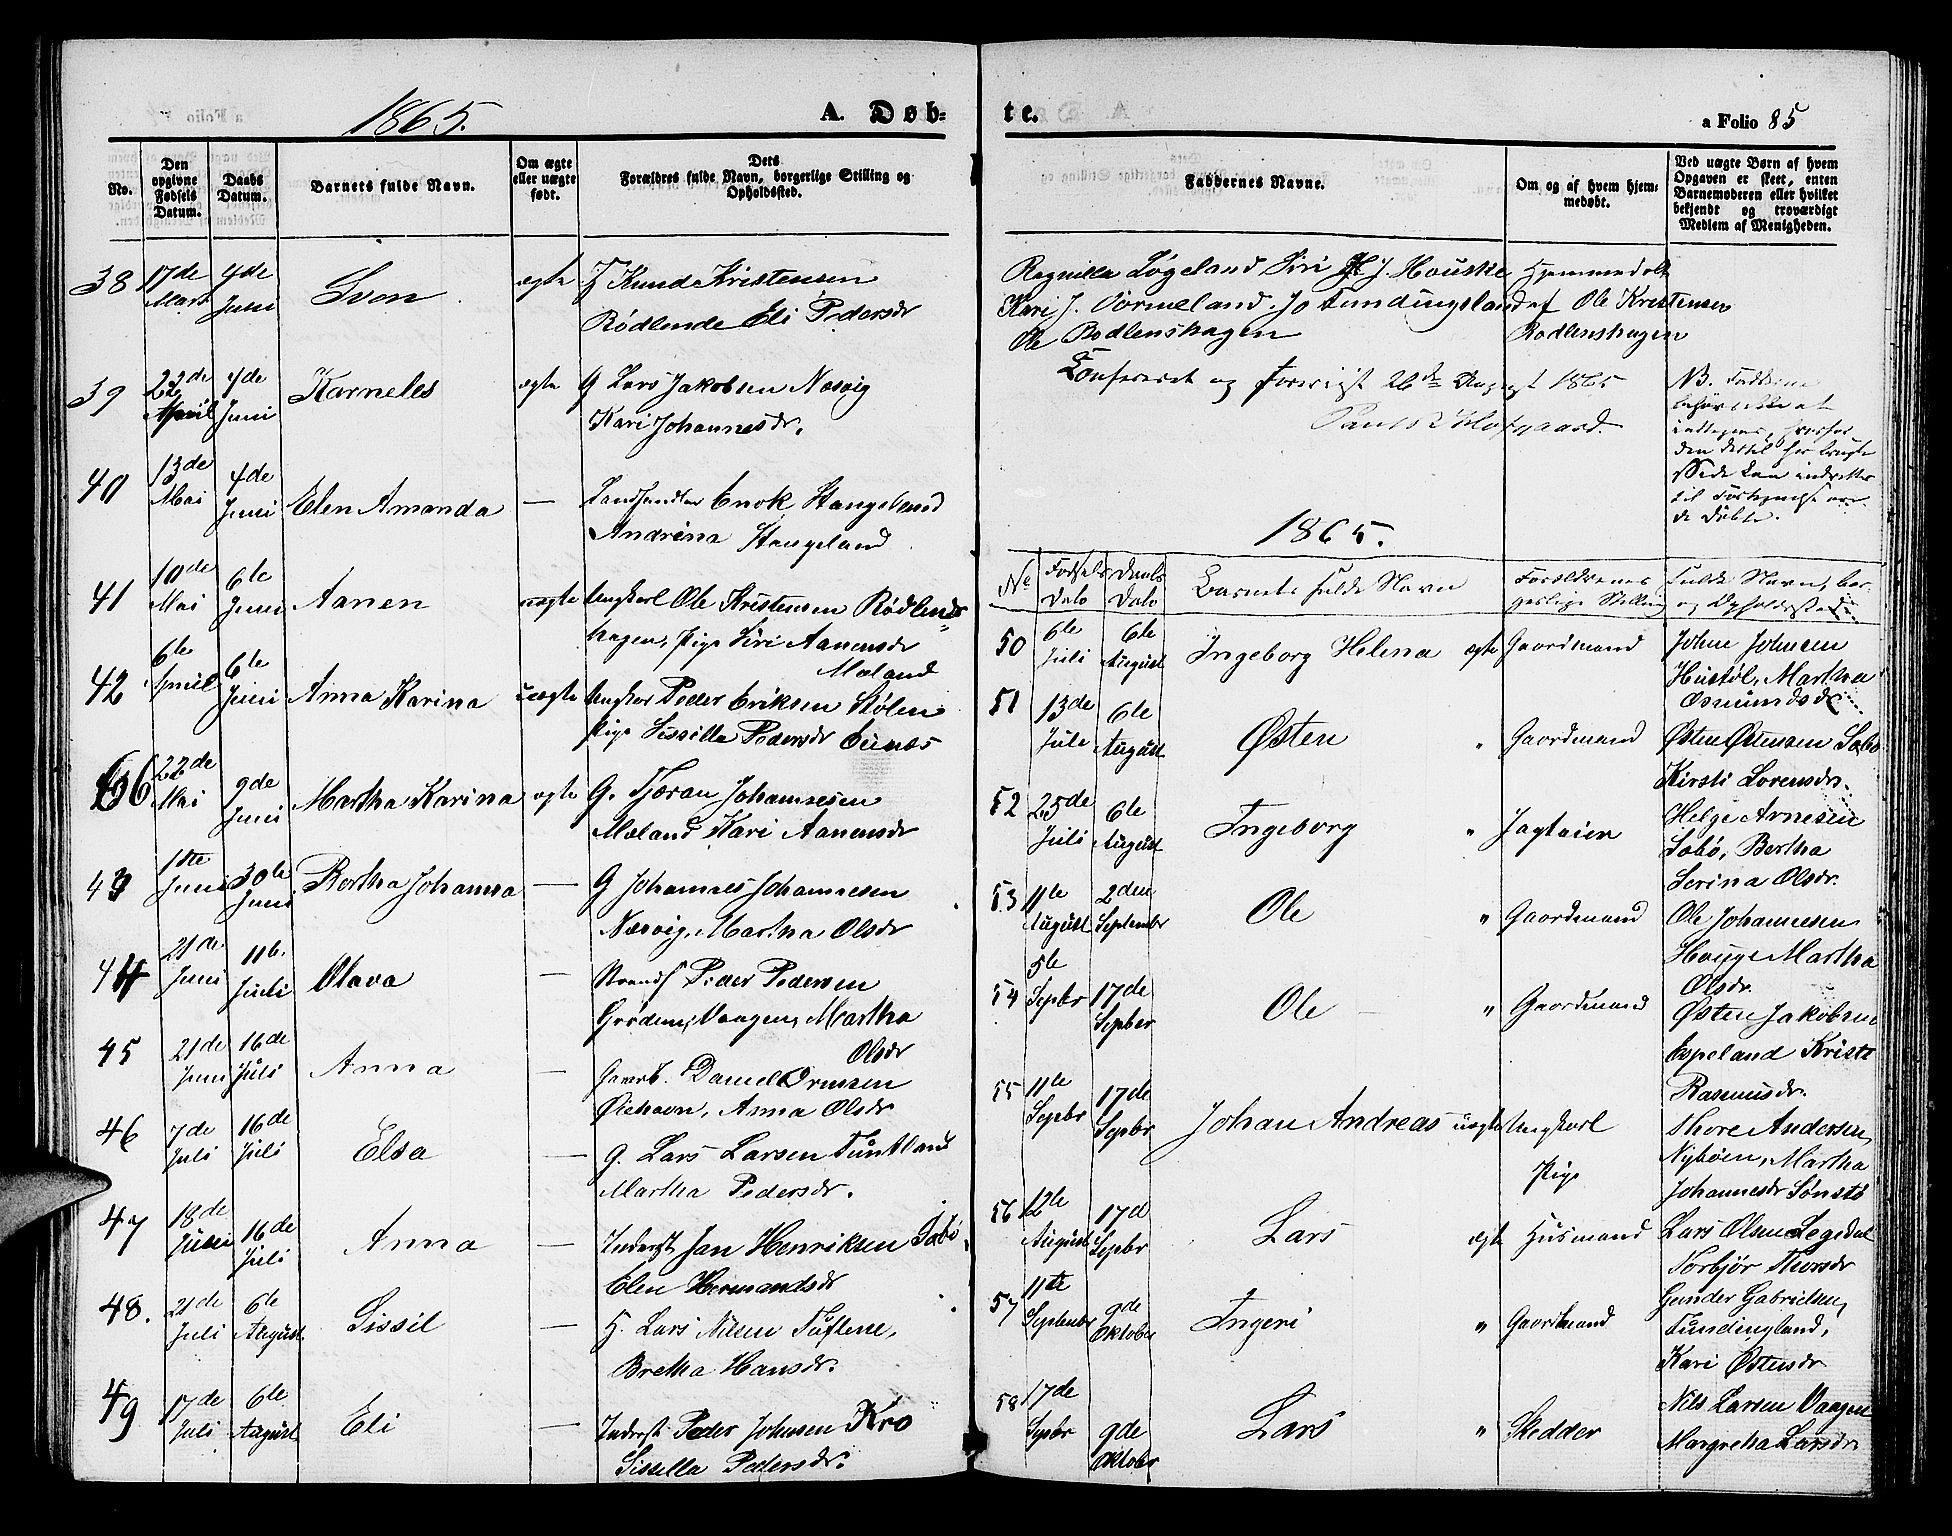 1865.
A. Døb-
No.
Den opgivne Fødsels Datum.
Daabs Datum.
Barnets fulde Navn.
Om ægte eller uægte født.
Dets Forældres fulde Navn, borgerlige Stilling og Opholdssted.
38 17de Mart 4de Juni Sven ægte H Knud Kristensen
Rødlende Eli Pedersdr
39 22de April 4de Juni Karneles ægte G Lars Jakobsen Næsvig
Kari Johannesdr.
40 13de Mai 4de Juni Elen Amanda — Landhandler Enok Stangeland
Andrina Stangeland
41 10de Mai 6te Juni Aanen uægte Ungkarl Ole Kristensen Rødlends-
hagen, Pige Siri Aanensdr
Mæland
42 6te April 6te Juni Anna Karina uægte Ungkar Peder Eriksen Stølen
Pige Sissilla Pedersdr
66 22de Mai 9de Juni Martha Karina ægte G. Tjøran Johannesen
Mæland Kari Aanensdr
43 1ste Juni 30te Juni Bertha Johanna — G Johannes Johannesen
Næsvig, Martha Olsdr
44 21de Juni 11te Juli Olava — Strands Peder Pedersen
Vaagen, Martha
Olsdr
45 21de Juni 16de Juli Anna — Gaardb. Daniel Ormsen
Øiehavn, Anna Olsdr
46 7de Juli 16de Juli Elsa G. Lars Larsen Tuntland
Martha Pedersdr.
47 18de Juni 16de Juli Anna — Inderst Jan Henriksen Sæbø,
Elen Hermandsdr
48. 21de Juli 6te August Sissil — H. Lars Nilsen Tuftene,
Bretha Hansdr.
49 17de Juli 6te August Eli — Inderst Peder Johnsen Kro
Sissella Pedersdr.
te.
a Folio 85
Faddernes Navne.
Om og af hvem hjemmedøbt.
Ved uægte Børn af hvem Opgaven er skeet, enten Barnemoderen eller hvilket bekjendt og troværdigt Medlem af Menigheden.
Ragnilla Løgeland Siri J. Houske Hjemmedøbt
Kari J. Vormeland. Jo Tundingsland af Ole Kristensen
Ole Rødlenshagen Rødlenshagen
Confereret og foreviist 26de August 1865
NB. Fadderne
behøve ikke at
indtegnes, hvorfor
den dertil før brugte
Side kan indrettes
til Fortsættelse over
de Døbte.
1865.
No Fødsels Dato Daabs Dato Barnets fulde Navn Forældrenes fulde Navn, bor-
gerlige Stilling og Opholdssted
50 6te Juli 6te August Ingeborg Helena ægte Gaardmand John Johnsen
Hustøl, Martha
Osmundsdr
51 13de Jule 6te August Østen " Gaardmand Østen Østensen Sæbø
Kirsti Lorensdr.
52 25de Juli 6te August Ingeborg " Jagteier Helge Arnesen
Sæbø, Bertha
Serina Olsdr.
53 11te August 2den Septembr Ole " Gaardmand Ole Johannesen
Houge Martha
Olsdr.
54 5te Sepbr 17de Sepber Ole " Gaardmand Østen Jakobsen
Espeland Kristi
Rasmusdr.
55 11te Sepbr 17de Sepbr Johan Andreas uægte Ungkarl Thore Andersen
Nybøen, Martha
Pige Johannesdr Sønstø
56 12te August 17d Sepbr Lars ægte Husmand Lars Olsen Legedal
Torbjør Thorsdr
57 11te Septembr 9de Oktober Ingeri " Gaardmand Gunder Gabrielsen,
Tundingland,
Kari Østensdr
58 17de Sepbr 9de Oktober Lars " Skedder Nils Larsen Vaagen
Margretha Larsdr